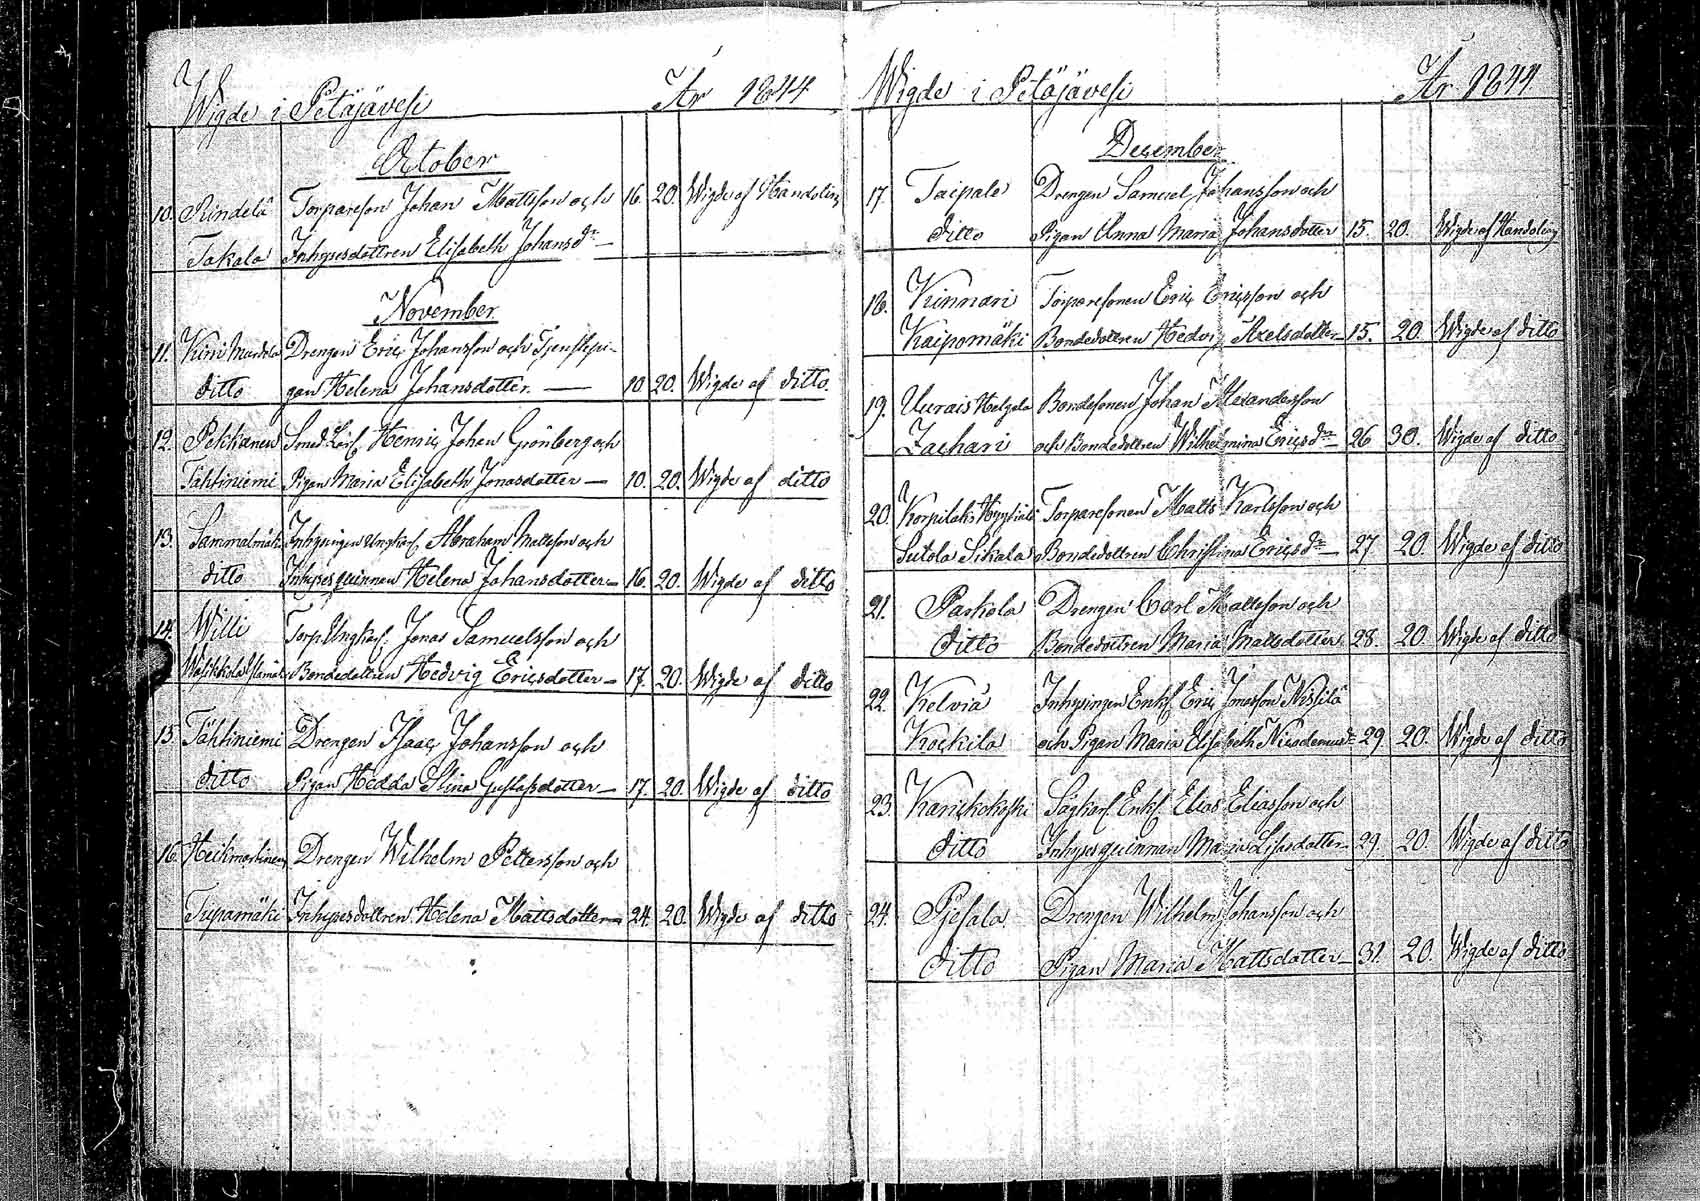 Wigde i Petäjävesi År 1844
October
10. Rindelä Torpareson Johan Mattsson och 16. 20. Wigde af Handoling
Takala Inhysesdottren Elisabeth Johansdr
November
11. Drengen Eric Johansson och Tjenstepi-
ditto gan Helena Johansdotter. 10 20. Wigde af ditto.
12. Pekkanen Smed Henric Johan Grönberg och
Tähtiniemi Pigan Maria Elisabeth Jonasdotter 10. 20. Wigde af ditto
13. Inhysingen Ungkarl Abraham Mattsson och
ditto Inhysesquinnan Helena Johansdotter 16. 20. Wigde af ditto
14. Willi Torp. Ungkarl. Jonas Samuelsson och
Bondedottren Hedvig Ericsdotter 17. 20. Wigde af ditto
15. Tähtiniemi Drengen Isaac Johansson och
ditto Pigan Hedda Stina Gustafsdotter 17. 20. Wigde af ditto
16. Drengen Wilhelm Pettersson och
Tupamäki Inhysesdottren Helena Mattsdotter 24. 20. Wigde af ditto
Wigde i Petäjävesi År 1844.
December
17. Taipale Drengen Samuel Johansson och
ditto Pigan Anna Maria Johansdotter 15. 20. Wigde af Handoling
18. Kinnari Torparesonen Eric Ericsson och
Kaipomäki Bondedottren Hedvig Axelsdotter 15. 20. Wigde af ditto
19. Uurais Bondesonen Johan Alexandersson
Zachari och Bondedottren Wilhelmina Ericsdr 26 30. Wigde af ditto
20. Korpilaks Torparesonen Matts Karlsson och
Sutola Sikala Bondedottren Christina Ericsdr 27 20. Wigde af ditto
21. Paskola Drengen Carl Mattsson och
ditto Bondedottren Maria Mattsdotter 28. 20. Wigde af ditto
22. Kelviä Inhysingen Enkl. Eric
Kockila och Pigan Maria Elisabeth Nicodemusdr 29 20. Wigde af ditto
23. Sågkarl Enkl. Elias Eliasson och
ditto Inhysesquinnan Maria 29. 20. Wigde af ditto
24. Pjesala Drengen Wilhelm Johansson och
ditto Pigan Maria Mattsdotter 31. 20. Wigde af ditto